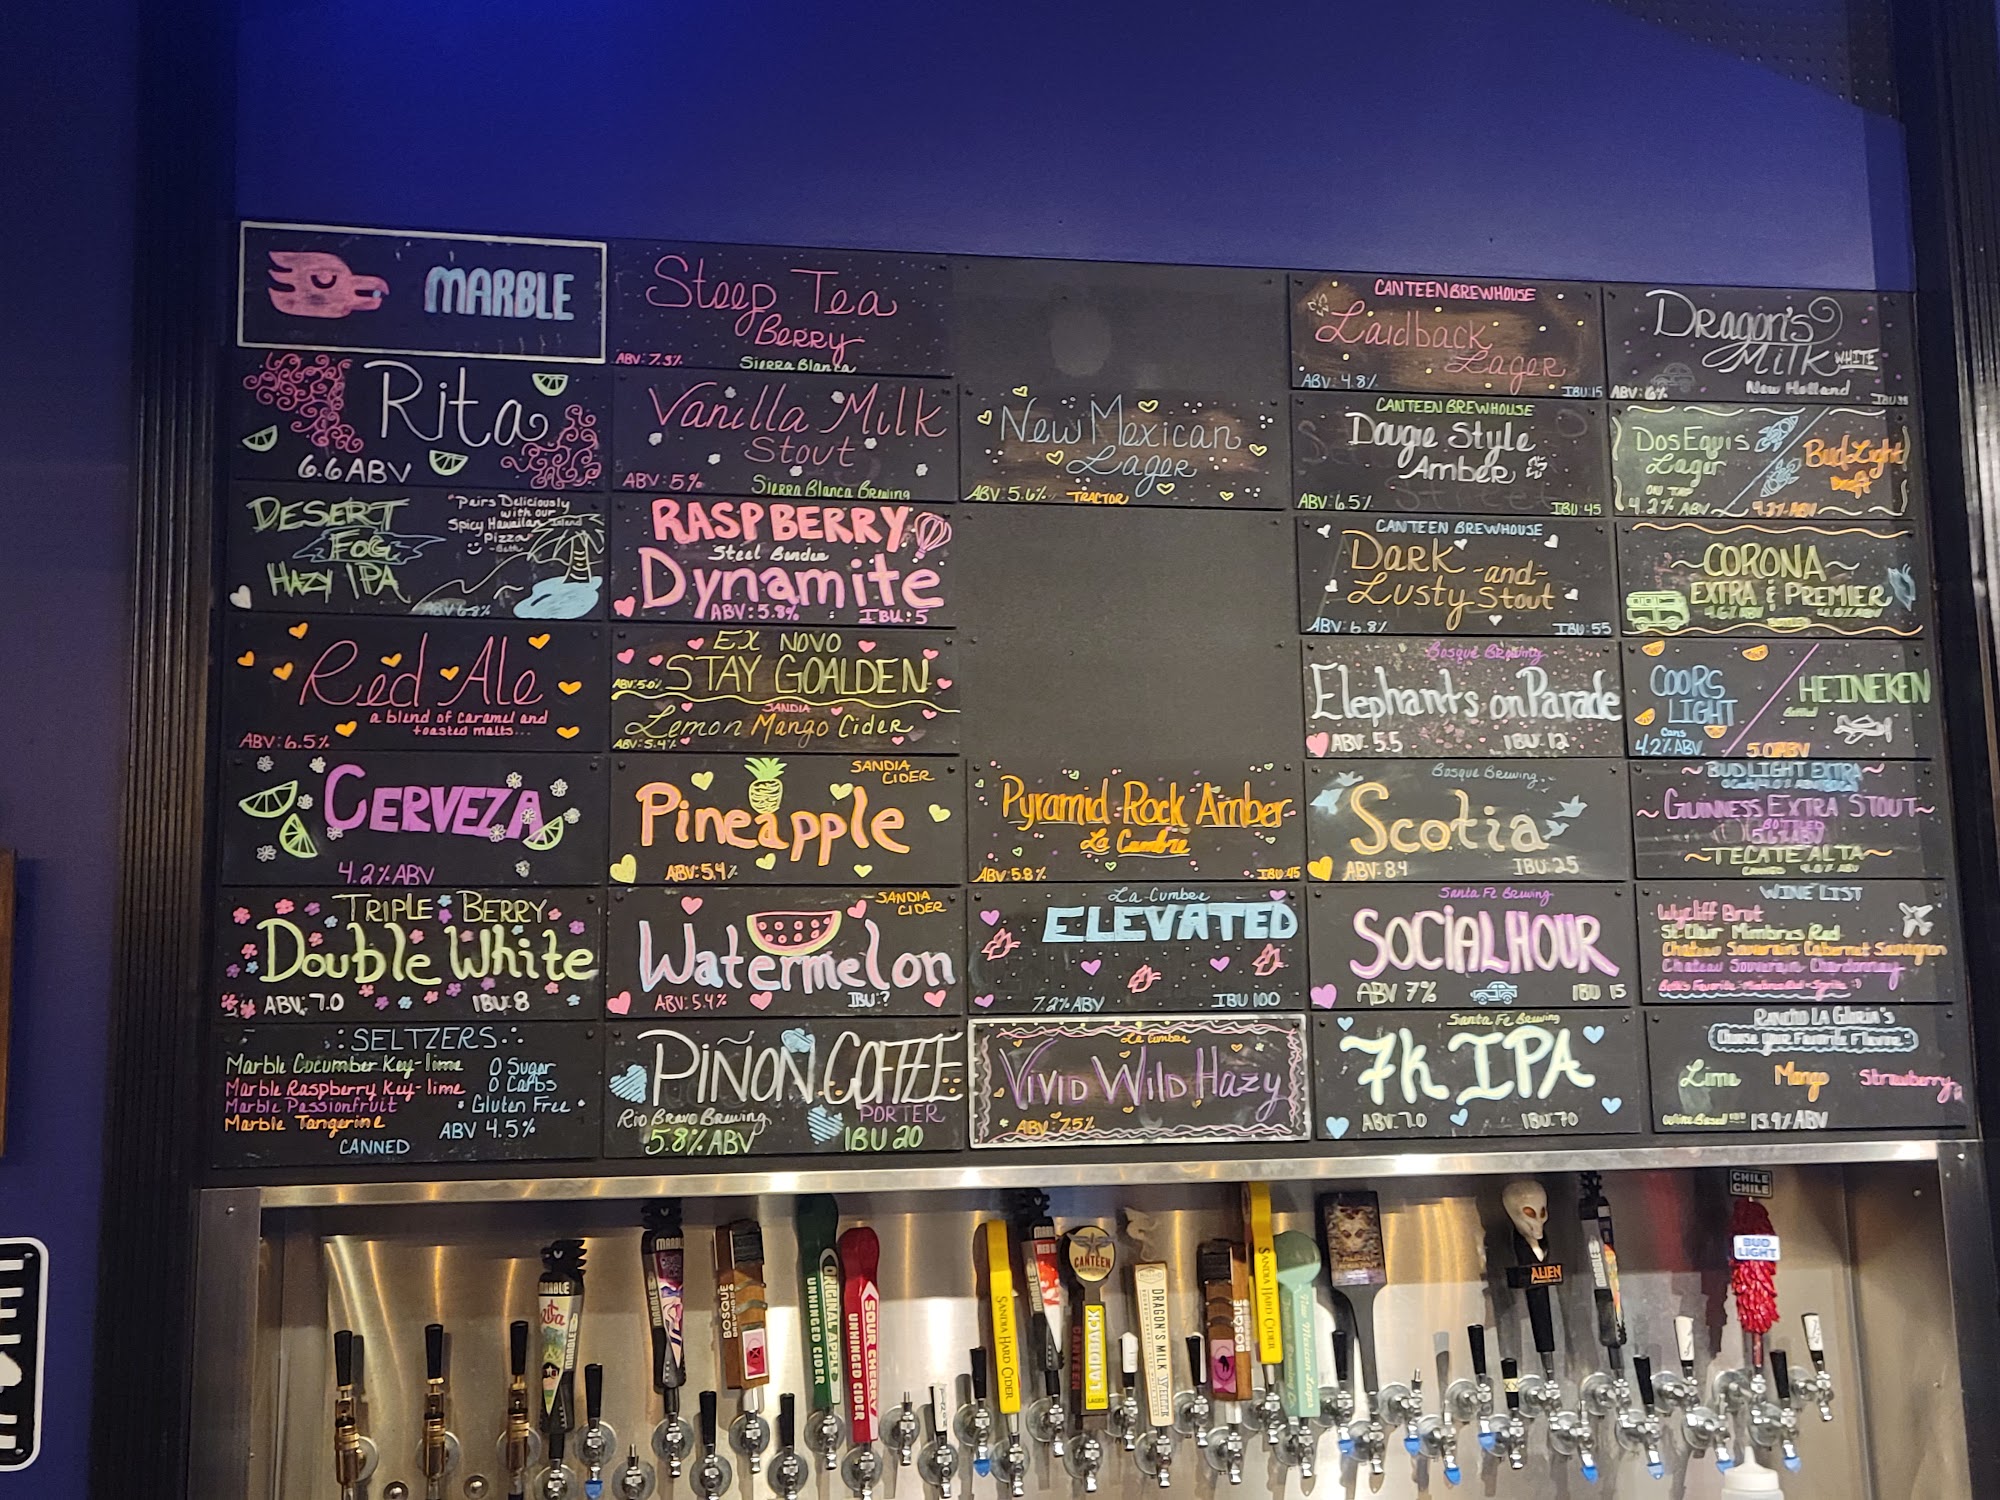 MARBLE
Rita
6.6 ABV
DESERT
FOG
HAZY IPA
"Pairs Deliciously
with our
Spicy Hawaiian Island
Pizza"
-Beth
ABV 6.8%
Red Ale
a blend of caramel and
toasted malts...
ABV: 6.5%
CERVEZA
4.2% ABV
TRIPLE BERRY
Double White
ABV: 7.0 IBU: 8
SELTZERS
Marble Cucumber Key-lime
Marble Raspberry Key-lime
Marble Passionfruit
Marble Tangerine
0 Sugar
0 Carbs
Gluten Free
ABV 4.5%
CANNED
Steep Tea
Berry
ABV: 7.3% Sierra Blanca
Vanilla Milk
Stout
ABV: 5% Sierra Blanca Brewing
RASPBERRY
Steel Bender
Dynamite
ABV: 5.8% IBU: 5
EX NOVO
STAY GOALDEN
ABV: 5.0%
SANDIA
Lemon Mango Cider
ABV: 5.4%
SANDIA
CIDER
Pineapple
ABV: 5.4%
SANDIA
CIDER
Watermelon
ABV: 5.4% IBU: ?
PIÑON COFFEE
PORTER
Rio Bravo Brewing
5.8% ABV IBU 20
New Mexican
Lager
ABV: 5.6% TRACTOR
Pyramid Rock Amber
La Cumbre
ABV: 5.8% IBU: 45
La Cumbre
ELEVATED
7.2% ABV IBU 100
La Cumbre
Vivid Wild Hazy
ABV: 7.5%
CANTEEN BREWHOUSE
Laidback
Lager
ABV: 4.8% IBU: 15
CANTEEN BREWHOUSE
Dougie Style
Amber
ABV: 6.5% IBU: 45
CANTEEN BREWHOUSE
DARK -and-
Lusty Stout
ABV: 6.8% IBU: 55
Bosque Brewing
Elephants on Parade
ABV: 5.5 IBU: 12
Bosque Brewing
Scotia
ABV: 8.4 IBU: 25
Santa Fe Brewing
SOCIAL HOUR
ABV 7% IBU 15
Santa Fe Brewing
7K IPA
ABV: 7.0 IBU: 70
Dragon's
Milk WHITE
New Holland
ABV: 6%
Dos Equis
Lager
ON TAP
4.2% ABV
Bud Light
Draft
CORONA
EXTRA & PREMIER
COORS
LIGHT
Cans
4.2% ABV
HEINEKEN
Bottled
5.0 ABV
BUD LIGHT EXTRA
GUINNESS EXTRA STOUT
BOTTLED
5.6% ABV
TECATE ALTA
WINE LIST
Wycliff Brut
St Clair Mimbres Red
Chateau Souverain Cabernet Sauvignon
Chateau Souverain Chardonnay
Beth's Favorite - Mimbres Red + Sprite :)
RANCHO LA GLORIA'S
Choose your Favorite Flavor:
Lime Mango Strawberry
Wine Based 13.9% ABV
MARBLE
MARBLE
MARBLE
BOSQUE
ORIGINAL APPLE
UNHINGED CIDER
SOUR CHERRY
UNHINGED CIDER
SANDIA HARD CIDER
MARBLE
CANTEEN
LAIDBACK
LAGER
DRAGON'S MILK
BOSQUE
SANDIA HARD CIDER
New Mexican Lager
ALIEN
MARBLE
CHILE
CHILE
BUD
LIGHT